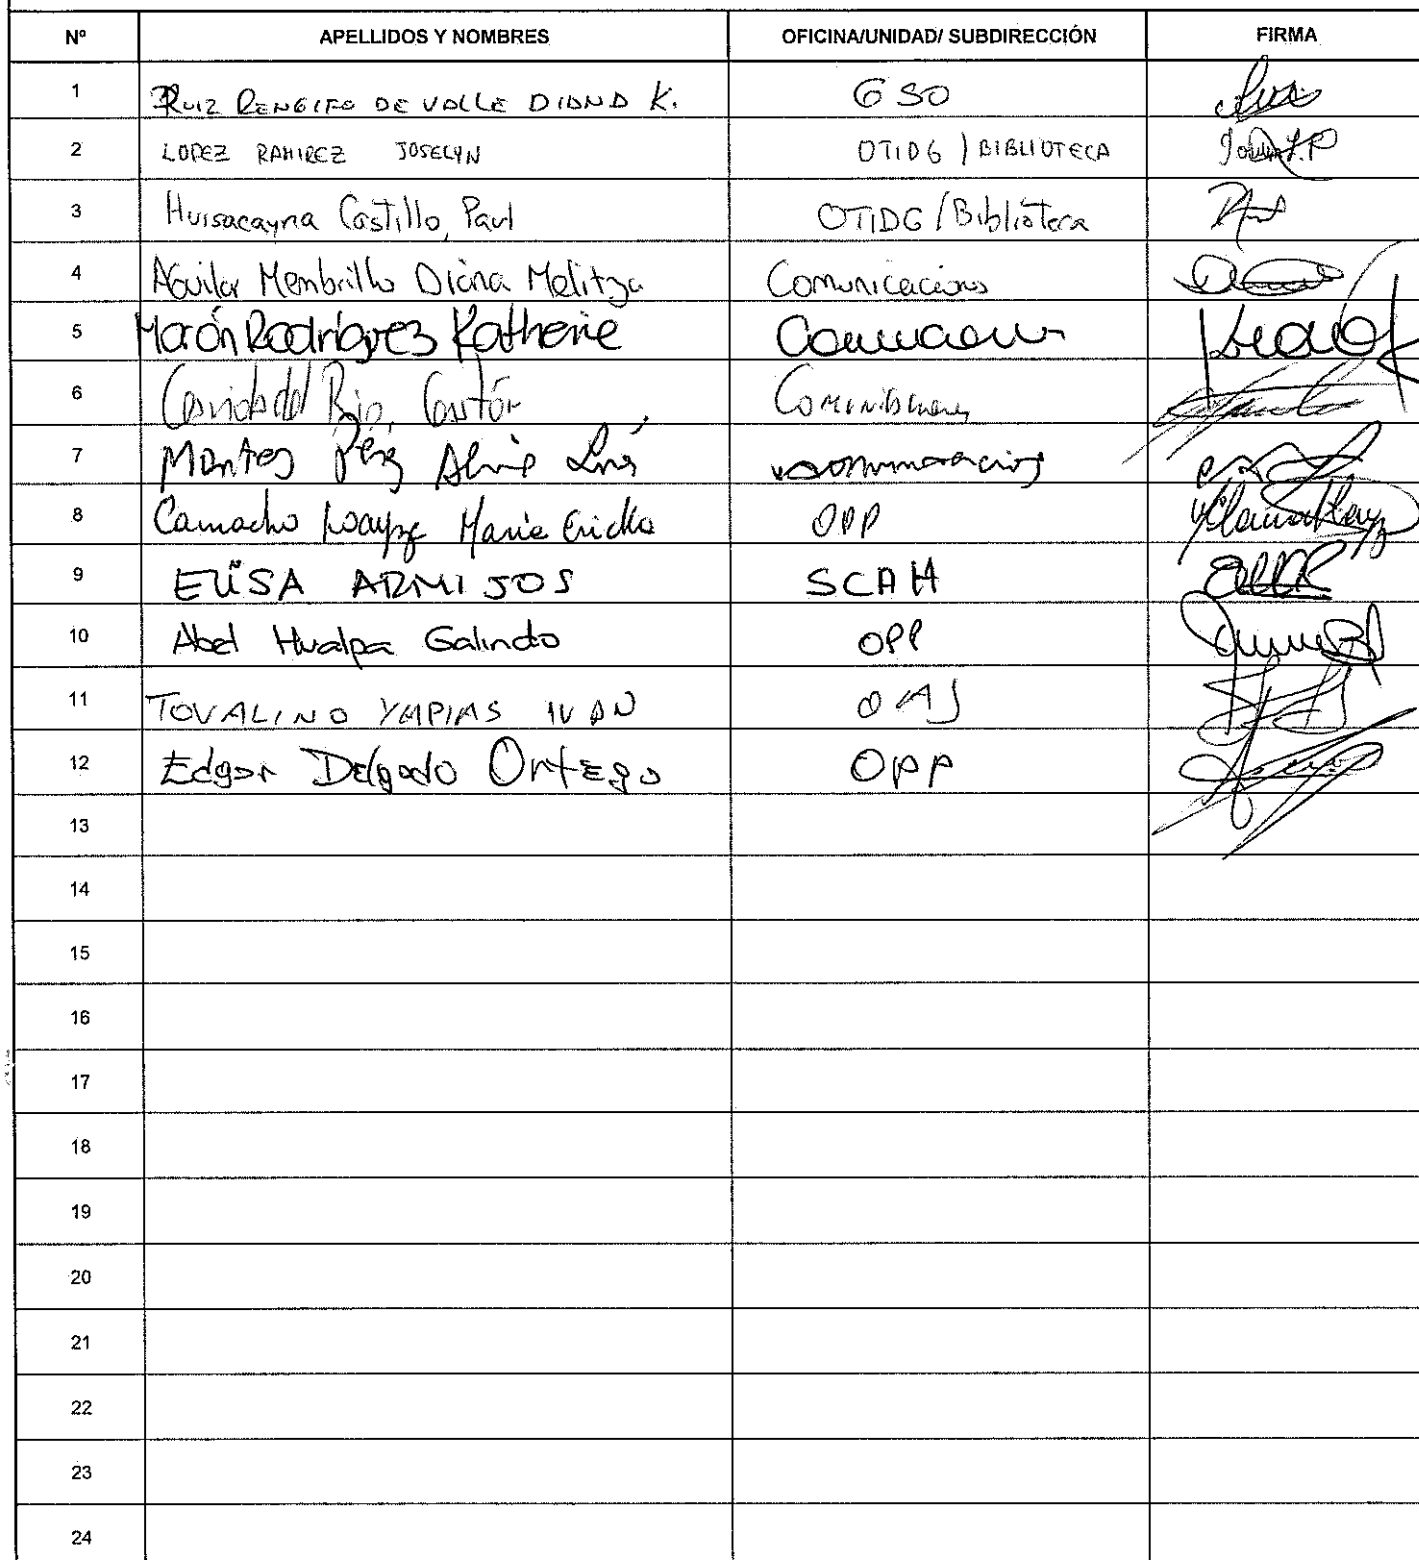 Nº APELLIDOS Y NOMBRES OFICINA/UNIDAD/ SUBDIRECCIÓN FIRMA
1 RUIZ RENGIFO DE VALLE DIANA K. GSO
2 LOPEZ RAMIREZ JOSELYN OTIDG / BIBLIOTECA
3 Huisacayna Castillo, Paul OTIDG / Biblioteca
4 Aguilar Membrillo Diana Melitza Comunicaciones
5 Marón Rodríguez Katherie
6 del Rio, Gastón
7 Montes
8 Camacho Maria Ericka OPP
9 ELISA ARMIJOS SCAH
10 Abel Hualpa Galindo OPP
11 TOVALINO YMPIAS IVAN OAJ
12 Edgar Delgado Ortega OPP
13
14
15
16
17
18
19
20
21
22
23
24